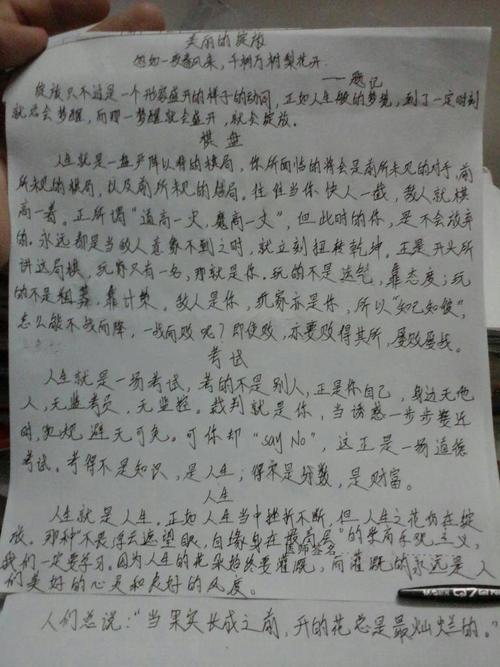 美丽的绽放
忽如一夜春风来，千树万树梨花开
——题记
绽放只不过是一个形容盛开的样子的动词，正如人生般的梦境，到了一定时刻
就总会梦醒，而那一梦醒就会盛开，就会绽放。
棋盘
人生就是一盘严阵以待的棋局，你所面临的将会是前所未见的对手，前
所未见的棋局，以及前所未见的结局。往往当你快人一截，敌人就棋
高一着。正所谓“道高一尺，魔高一丈”，但此时的你，是不会放弃
的。永远都是当敌人意察不到之时，就立刻扭转乾坤。正是开头所
讲这局棋，玩家只有一名，那就是你，玩的不是运气，靠态度；玩
的不是粗莽，靠计策。敌人是你，玩家亦是你，所以“知己知彼”，
怎么能不战而降，一战而败呢？即使败，亦要败得其所，屡败屡战。
考试
人生就是一场考试，考的不是别人，正是你自己，身边无他
人，无监考员，无监控。裁判就是你，当诱惑一步步接近
时，犯规避无可免。可你却“say No”，这正是一场道德
考试。考得不是知识，是人生；得来是分数，是财富。
人生
人生就是人生。正如人生当中挫折不断，但人生之花仍在绽
放。那种“不畏浮云遮望眼，自缘身在最高层”的乐观主义，
医师签名
我们一定要学习。因为人生的花朵始终要灌溉，而灌溉的永远是人
们美好的心灵和良好的风度。
人们总说：“当果实长成之前，开的花总是最灿烂的。”